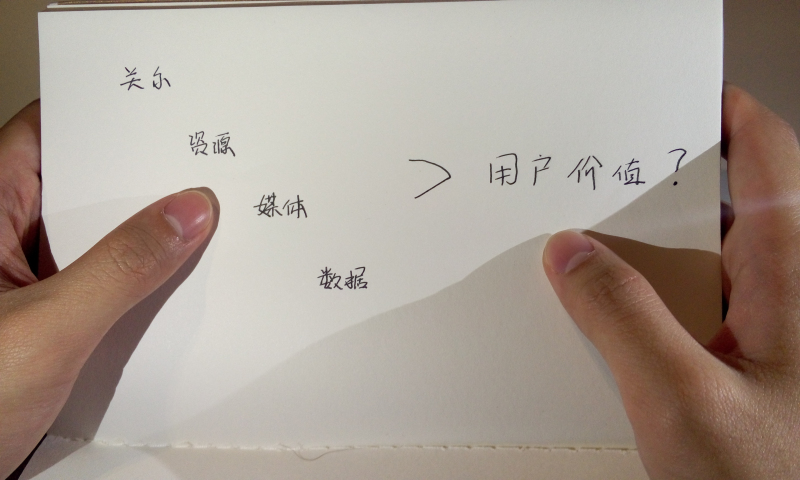 关系
资源
> 用户价值?
媒体
数据